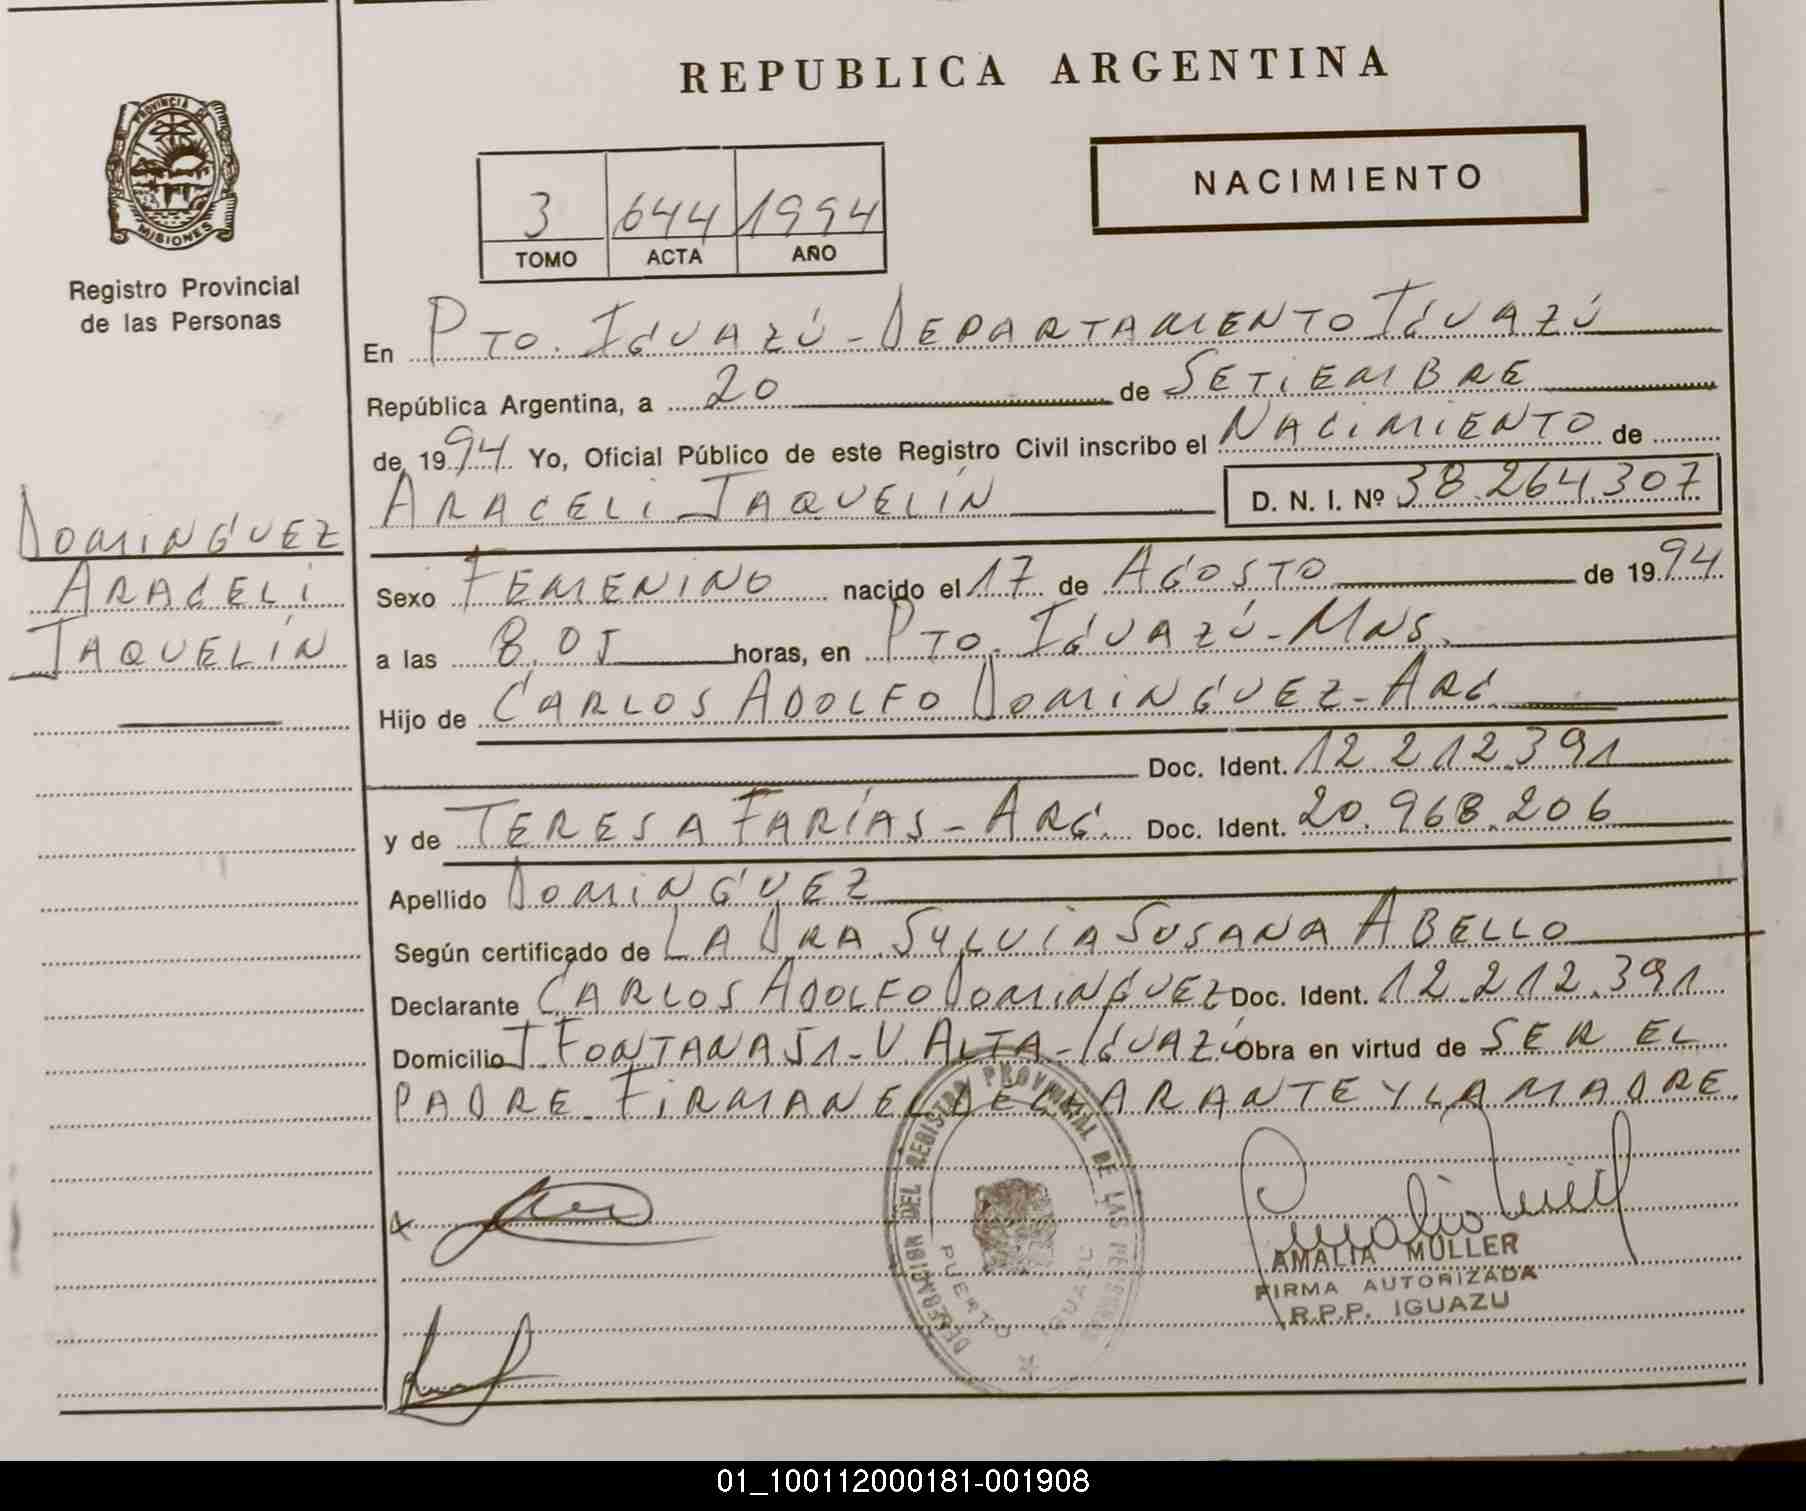 REPUBLICA ARGENTINA
PROVINCIA DE
MISIONES
Registro Provincial
de las Personas
NACIMIENTO
3 644 1994
TOMO ACTA AÑO
En PTO. IGUAZÚ - DEPARTAMENTO IGUAZÚ
República Argentina, a 20 de SETIEMBRE
de 1994 Yo, Oficial Público de este Registro Civil inscribo el NACIMIENTO de
ARACELI JAQUELÍN D. N. I. Nº 38.264.307
DOMINGUEZ
ARACELI
JAQUELÍN
Sexo FEMENINO nacido el 17 de AGOSTO de 1994
a las 8.05 horas, en PTO. IGUAZÚ - MNS.
Hijo de CARLOS ADOLFO DOMINGUEZ - ARG.
Doc. Ident. 12.212.391
y de TERESA FARÍAS - ARG. Doc. Ident. 20.968.206
Apellido DOMINGUEZ
Según certificado de LA DRA SYLVIA SUSANA ABELLO
Declarante CARLOS ADOLFO DOMINGUEZ Doc. Ident. 12.212.391
Domicilio J. FONTANA 51 - V. ALTA - IGUAZÚ Obra en virtud de SER EL
PADRE. FIRMAN EL DECLARANTE Y LA MADRE.
DELEGACION DEL REGISTRO PROVINCIAL DE LAS PERSONAS
PUERTO IGUAZU
AMALIA MULLER
FIRMA AUTORIZADA
R.P.P. IGUAZU
01_100112000181-001908